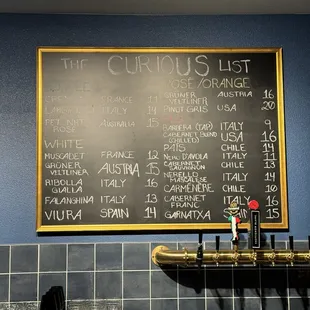 THE CURIOUS LIST
FRANCE 11
ITALY 14
PET NAT ROSÉ AUSTRALIA 15
WHITE
MUSCADET FRANCE 12
GRÜNER VELTLINER AUSTRIA 15
RIBOLLA GIALLA ITALY 16
FALANGHINA ITALY 13
VIURA SPAIN 14
ROSÉ/ORANGE
GRÜNER VELTLINER AUSTRIA 16
PINOT GRIS USA 20
BARBERA (TAP) ITALY 9
CABERNET BLEND (CHILLED) USA 16
PAÍS CHILE 14
NERO D'AVOLA ITALY 11
CABERNET SAUVIGNON CHILE 13
NERELLO MASCALESE ITALY 14
CARMÉNÈRE CHILE 10
CABERNET FRANC ITALY 16
GARNATXA SPAIN 14